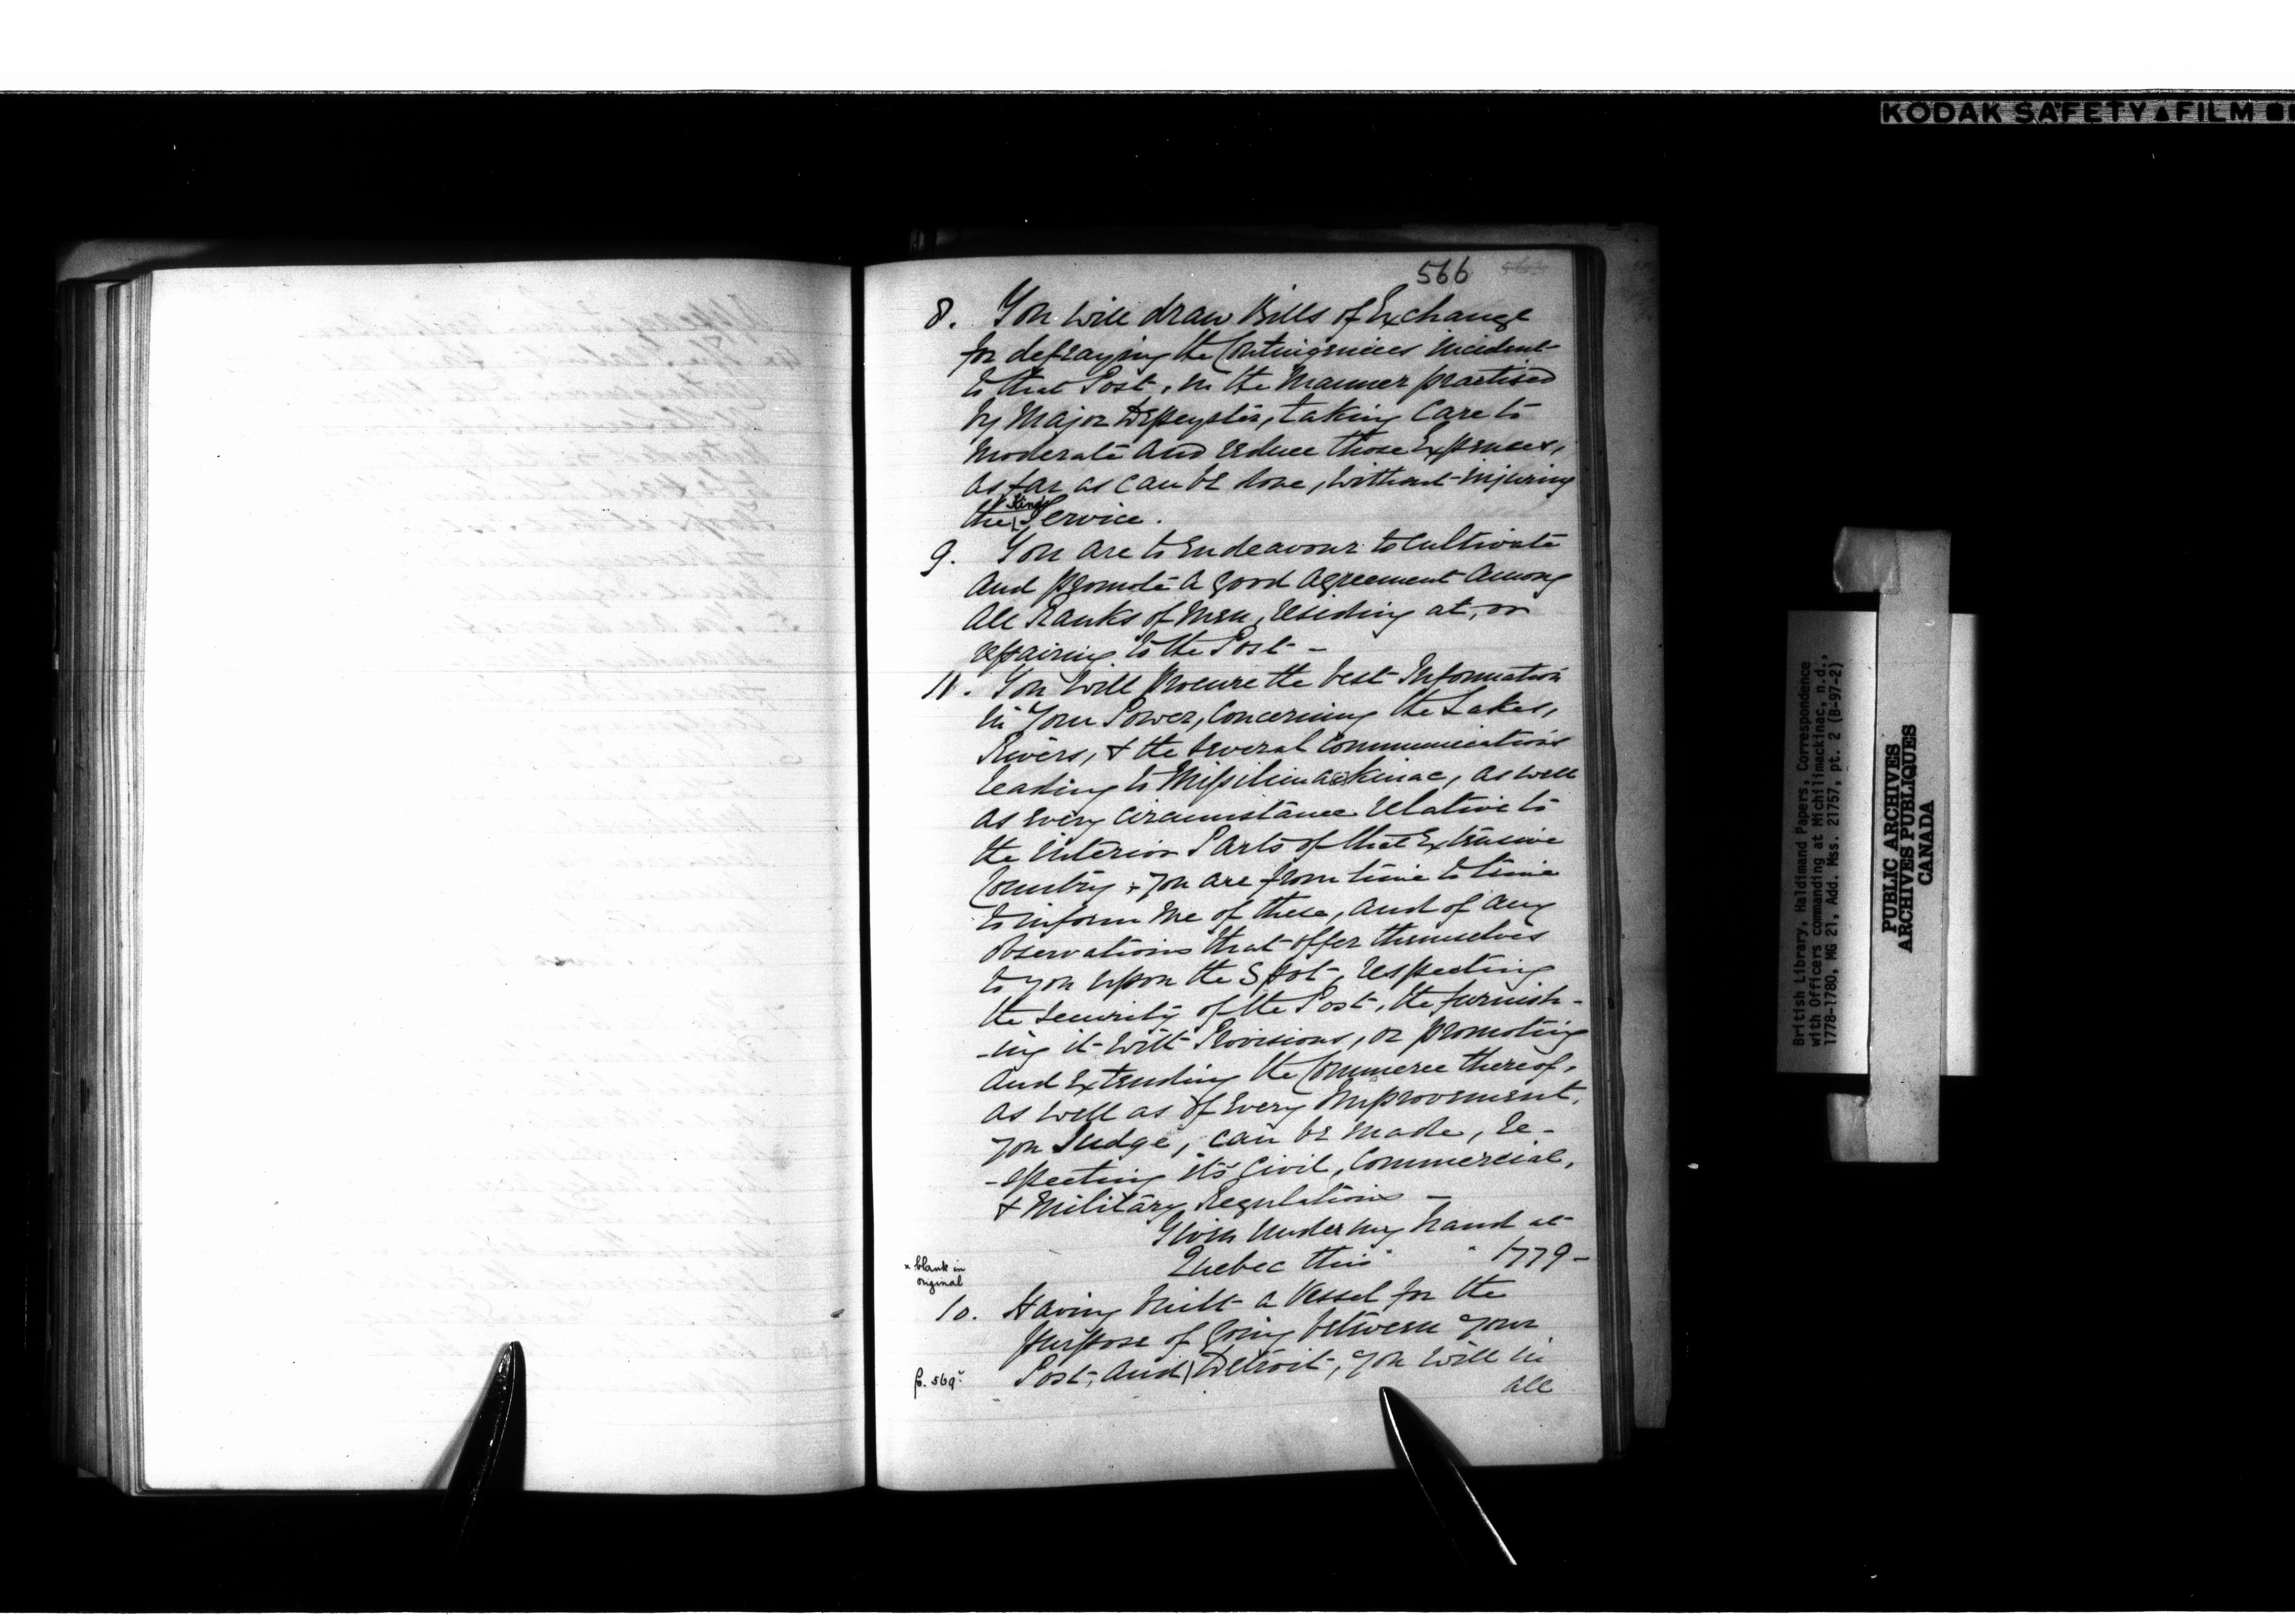 KODAK SAFETY ▲ FILM
566
8. You will draw Bills of Exchange
for defraying the Contingencies incident
to that Post, in the Manner practised
by Major DePeyster, taking Care to
Moderate and reduce those Expences,
as far as can be done, without injuring
the Kings Service.
9. You are to Endeavour to Cultivate
And promote a good Agreement Among
All Ranks of Men, residing at, or
repairing to the Post -
11. You will procure the best Information
in Your Power, Concerning the Lakes,
Rivers, & the several Communications
leading to Missilimackinac, as well
as every Circumstance relative to
the interior Parts of that Extensive
Country, & you are from time to time
to inform me of these, and of any
Observations that offer themselves
to you upon the Spot, respecting
the Security of the Post, the furnish-
-ing it with Provisions, or promoting
And Extending the Commerce thereof,
as well as of Every Improvement,
you Judge, can be made, re-
-specting its Civil, Commercial,
& Military Regulations -
Given under my hand at
Quebec this " " 1779 -
x blank in
original
10. Having built a Vessel for the
purpose of going between your
Post, and Detroit, you will in
p. 569
all
British Library, Haldimand Papers, Correspondence
with Officers commanding at Michilimackinac, n.d.,
1778-1780, MG 21, Add. Mss. 21757, pt. 2 (B-97-2)
PUBLIC ARCHIVES
ARCHIVES PUBLIQUES
CANADA